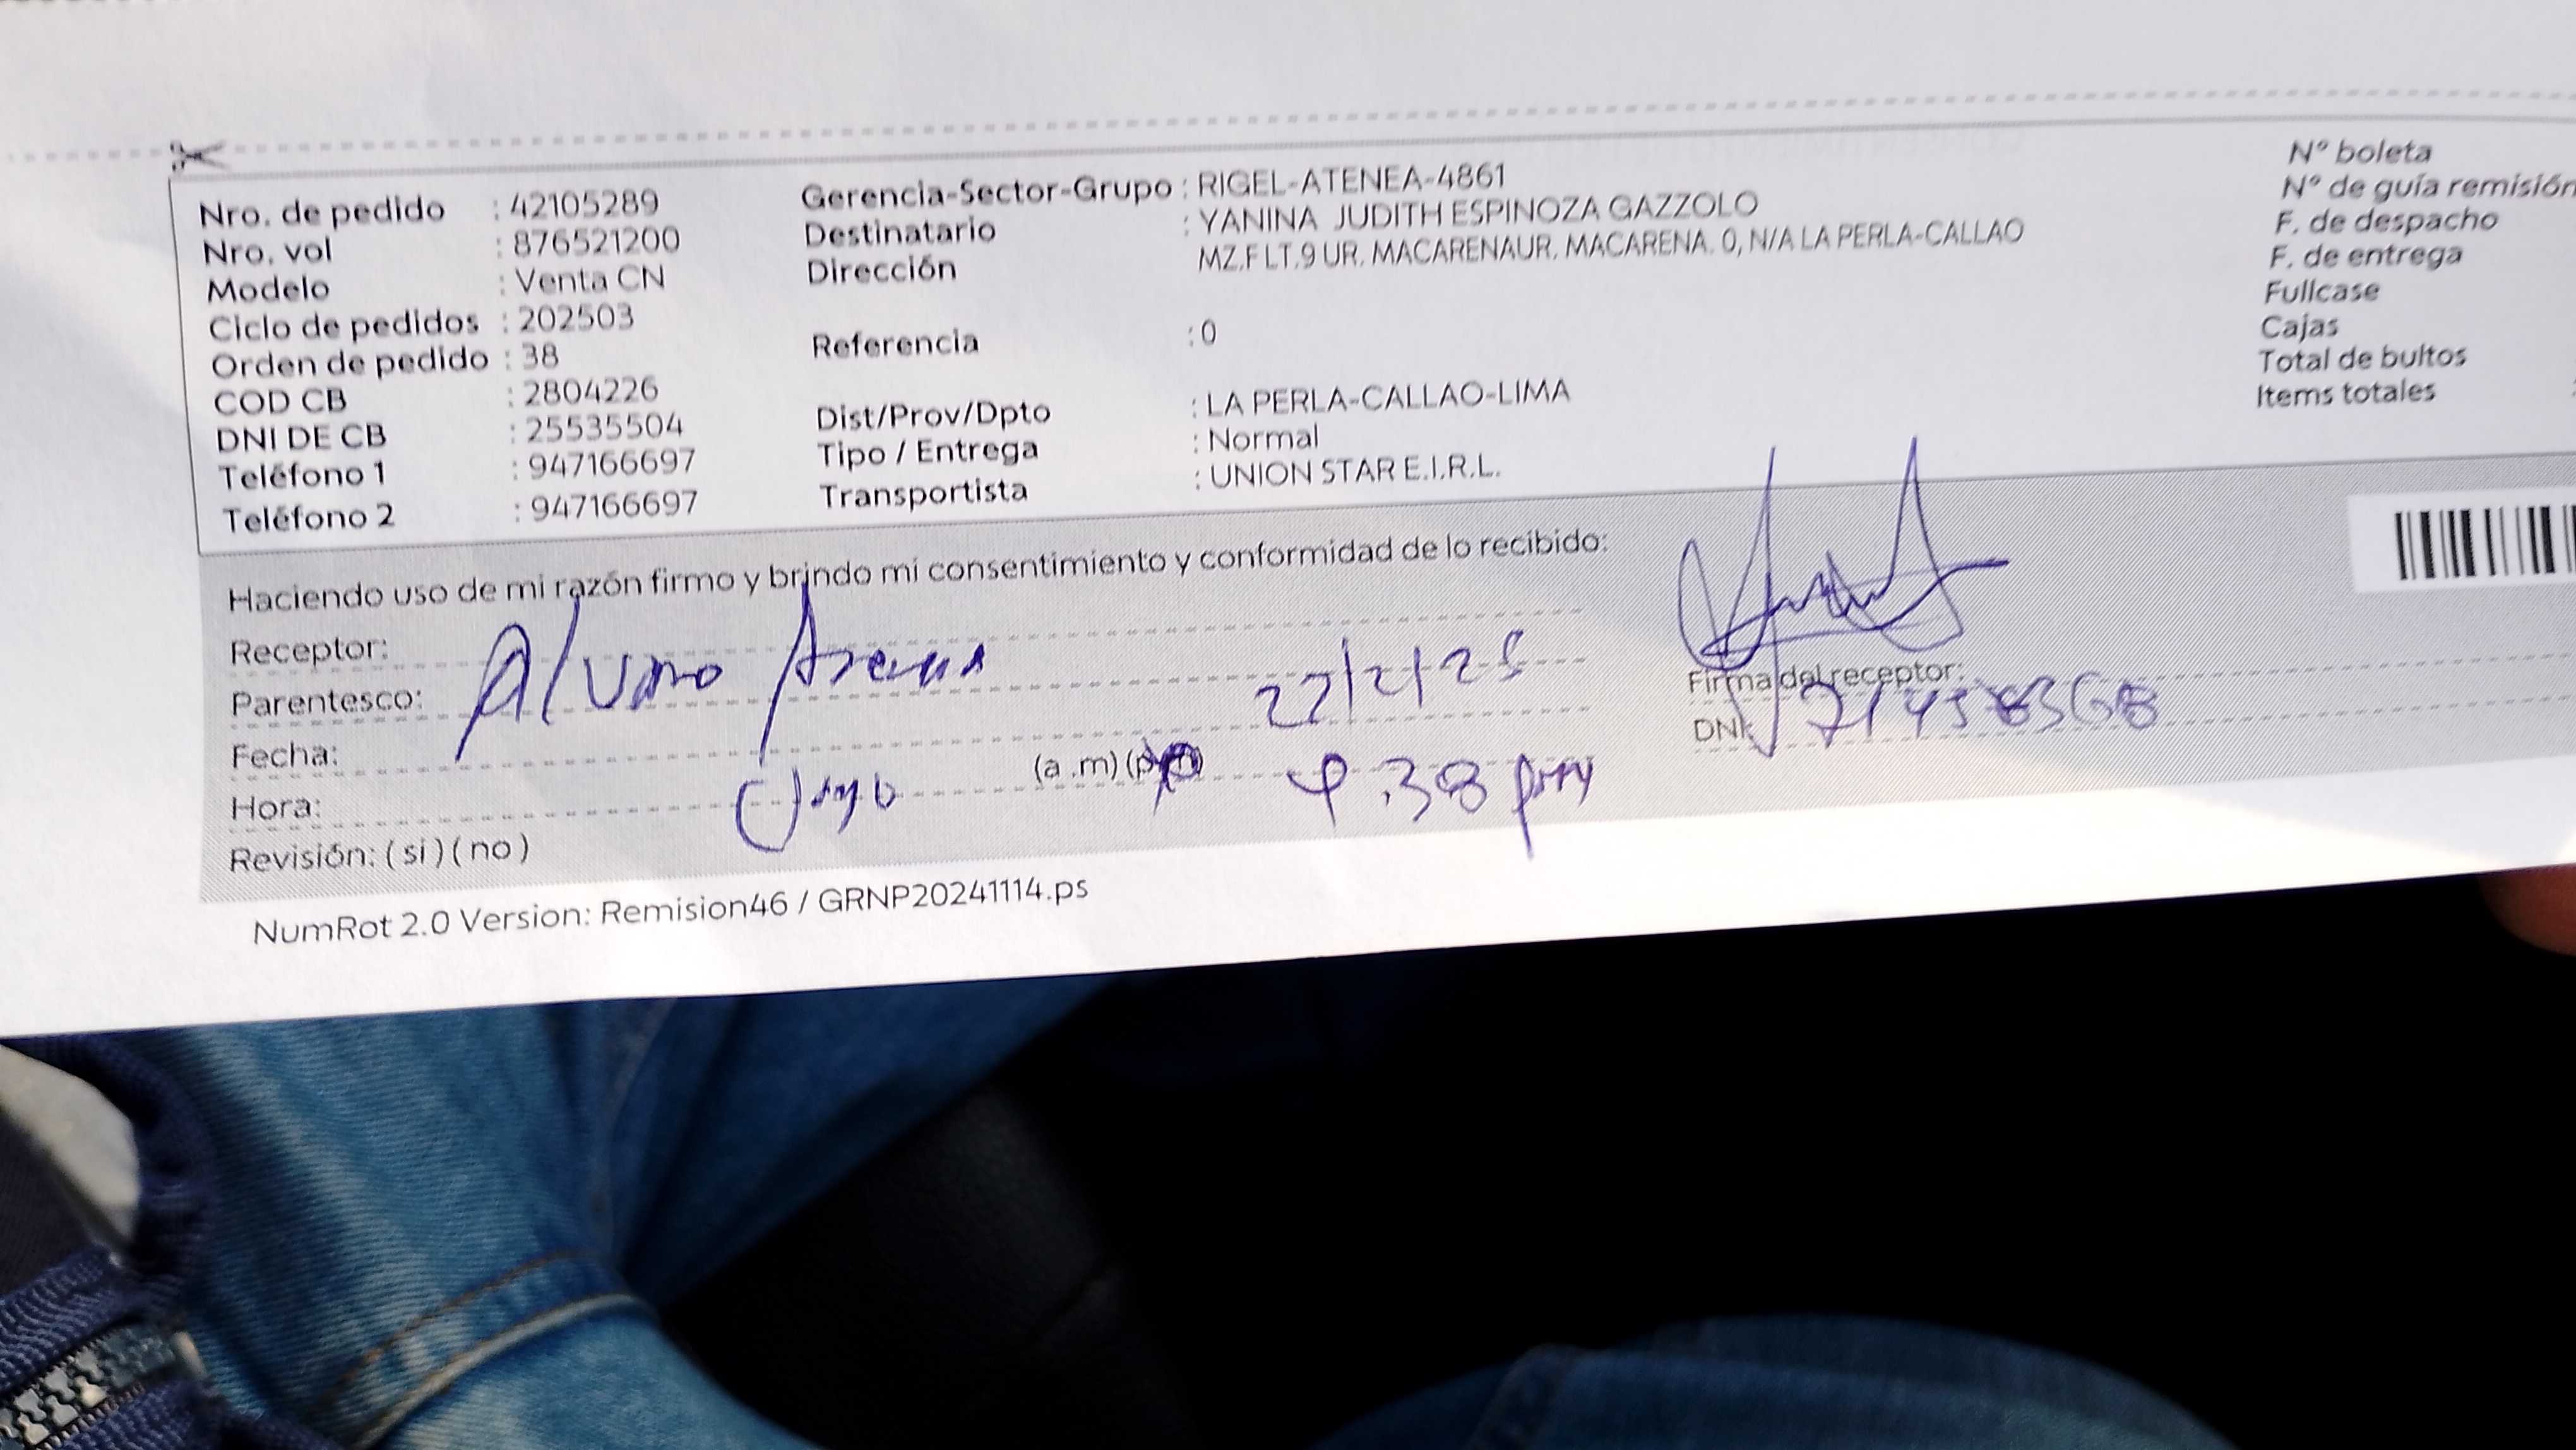 Nro. de pedido : 42105289
Nro. vol : 876521200
Modelo : Venta CN
Ciclo de pedidos : 202503
Orden de pedido : 38
COD CB : 2804226
DNI DE CB : 25535504
Teléfono 1 : 947166697
Teléfono 2 : 947166697
Gerencia-Sector-Grupo : RIGEL-ATENEA-4861
Destinatario : YANINA JUDITH ESPINOZA GAZZOLO
Dirección MZ.F LT.9 UR. MACARENAUR. MACARENA. 0, N/A LA PERLA-CALLAO
Referencia : 0
Dist/Prov/Dpto : LA PERLA-CALLAO-LIMA
Tipo / Entrega : Normal
Transportista : UNION STAR E.I.R.L.
N° boleta
N° de guía remisión
F. de despacho
F. de entrega
Fullcase
Cajas
Total de bultos
Items totales
Haciendo uso de mi razón firmo y brindo mi consentimiento y conformidad de lo recibido:
Receptor:
Parentesco: Alvaro
Fecha: 22/2/25
Hora: (a .m) 4.38 pm
Revisión: ( si ) ( no )
Firma del receptor:
DNI:
NumRot 2.0 Version: Remision46 / GRNP20241114.ps